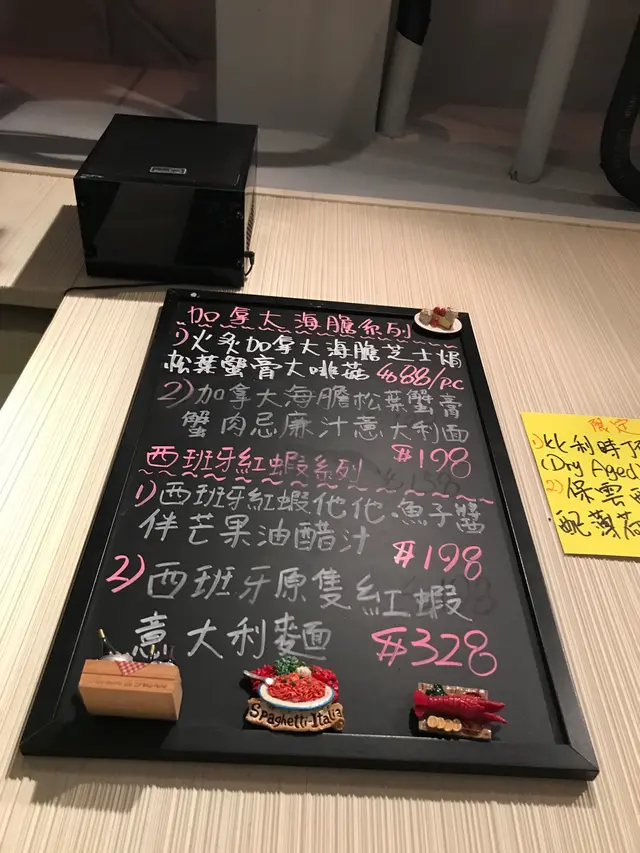 加拿大海膽系列
1) 火炙加拿大海膽芝士焗
松葉蟹膏大啡菇 $88/pc
2) 加拿大海膽松葉蟹膏
蟹肉忌廉汁意大利面
$198
西班牙紅蝦系列
1) 西班牙紅蝦他他魚子醬
伴芒果油醋汁
$198
2) 西班牙原隻紅蝦
意大利麵 $328
Spaghetti-Italia
限定
1) 比利時
(Dry Aged
2) 保雲
鮑薄荷